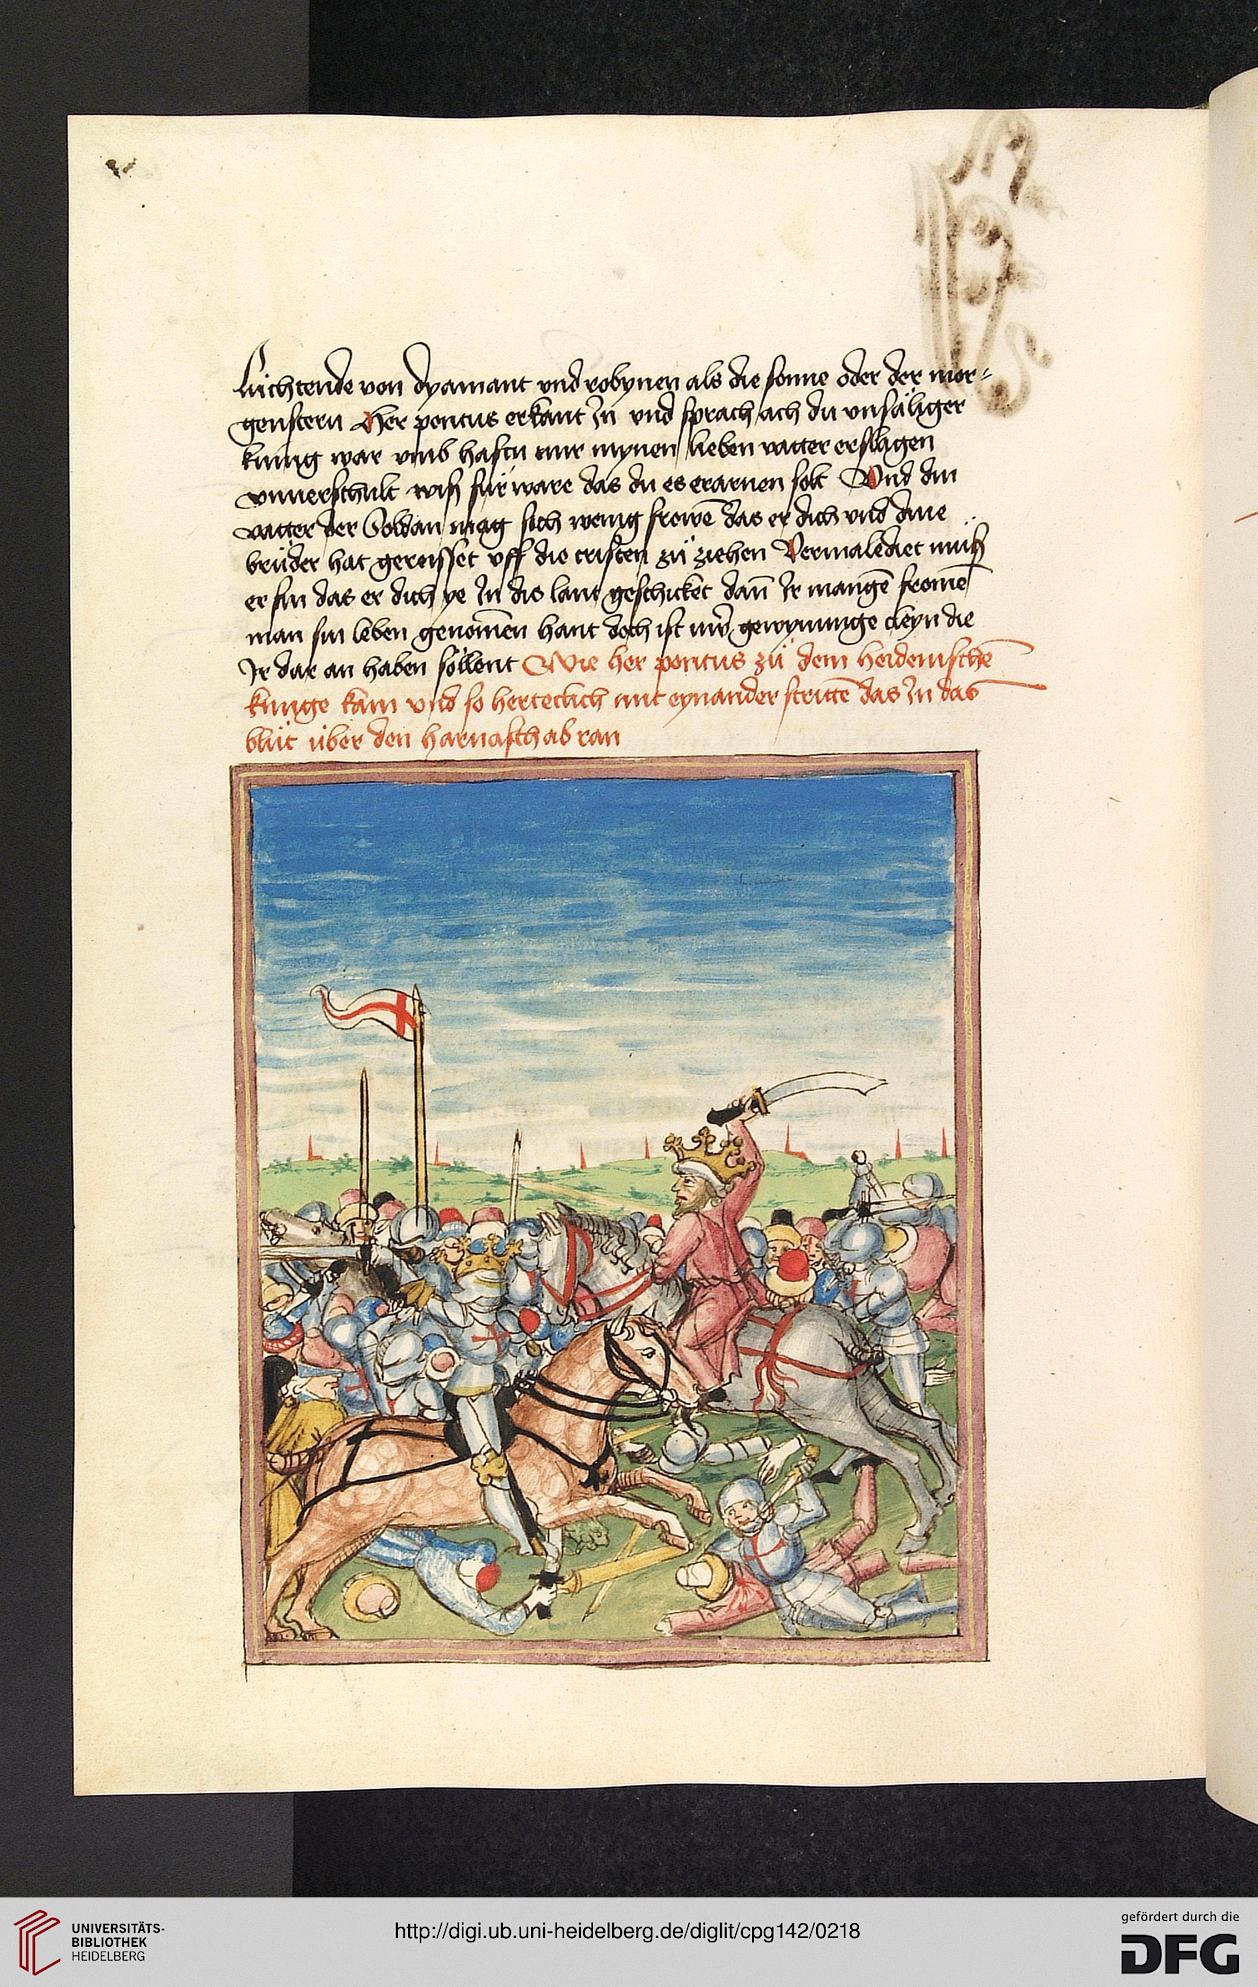 lüchtende von dyamant vnd robynen als die sonne oder der mor-
genstern Her pontus erkant In vnd sprach ach du vnsäliger
kunig war vmb hastu mir mynen lieben vatter erslagen
vnuerschult wiß für ware das du es erarnen solt Vnd din
vatter der Soldan mag sich wenig frowē das er dich vnd dine
brüder hat gereisset vff die cristen zü ziehen Vermalediet muß
er sin das er dich ye In dis lant geschicket dañ Ir mangē fromē
man sin leben genomen hant doch ist uwer gewynnunge cleyn die
Ir dar an haben söllent Wie her pontus zü dem heidenischē
kunige kam vnd so herteclich mit eynander strittē das In das
blüt über den harnasch ab ran
UNIVERSITÄTS-
BIBLIOTHEK
HEIDELBERG
http://digi.ub.uni-heidelberg.de/diglit/cpg142/0218
gefördert durch die
DFG